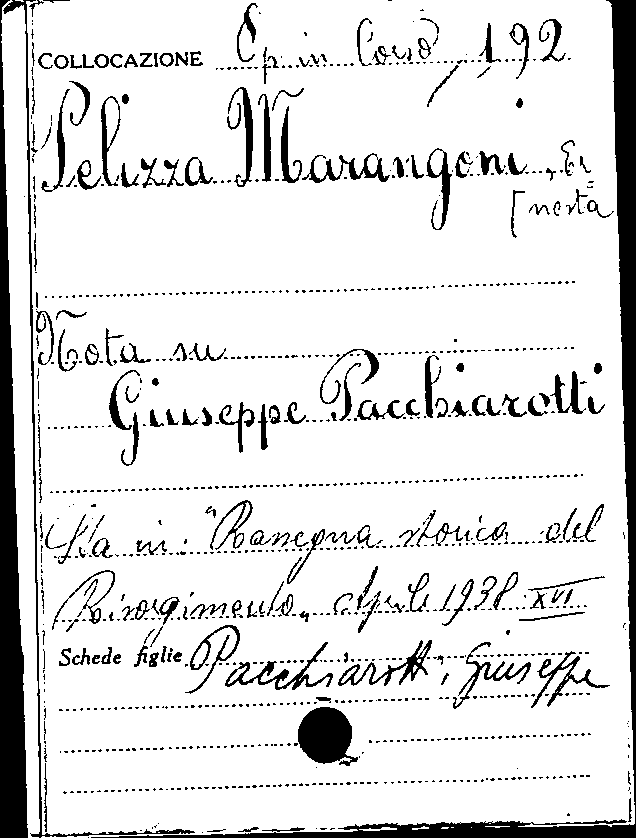 COLLOCAZIONE Ep in Corso, 192
Pelizza Marangoni, Er=
[nesta
Nota su
Giuseppe Pacchiarotti
Sta in: "Rassegna storica del
Risorgimento„ Aprile 1938 XVI
Schede figlie Pacchiarotti, Giuseppe